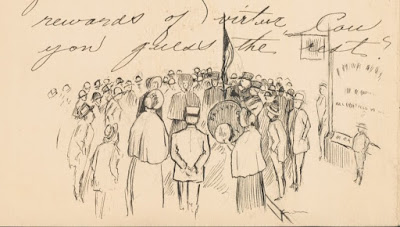 rewards of virtue" Can
you guess the rest?"